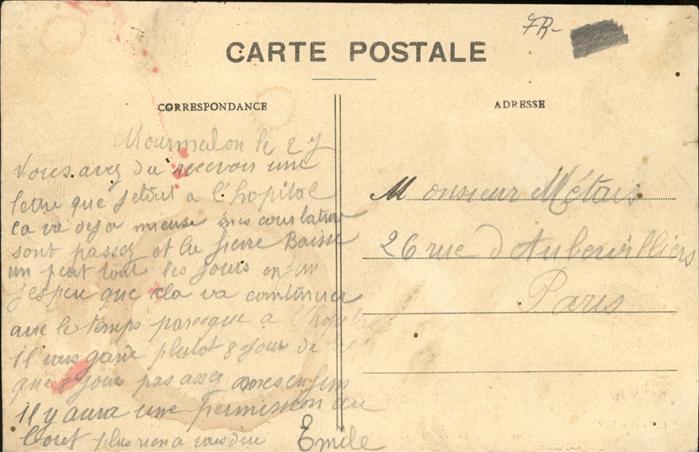 7R-
CARTE POSTALE
CORRESPONDANCE
ADRESSE
Mourmelon le 27
Vous avez du recevoir une
letre que jetait a l'hopital
ca va deja mieuse mes courbature
sont passez et la fievre Baisse
un peut tout les jours enfin
jespeu que cela va continuer
avec le temps parceque a l'hopital
il vous garde plutot 8 jour de
que 8 jour pas assez mes enfin
Il y aura une permission au
bout plus rien a vous dire
Emile
Monsieur Métais
26 rue d'Aubervilliers
Paris